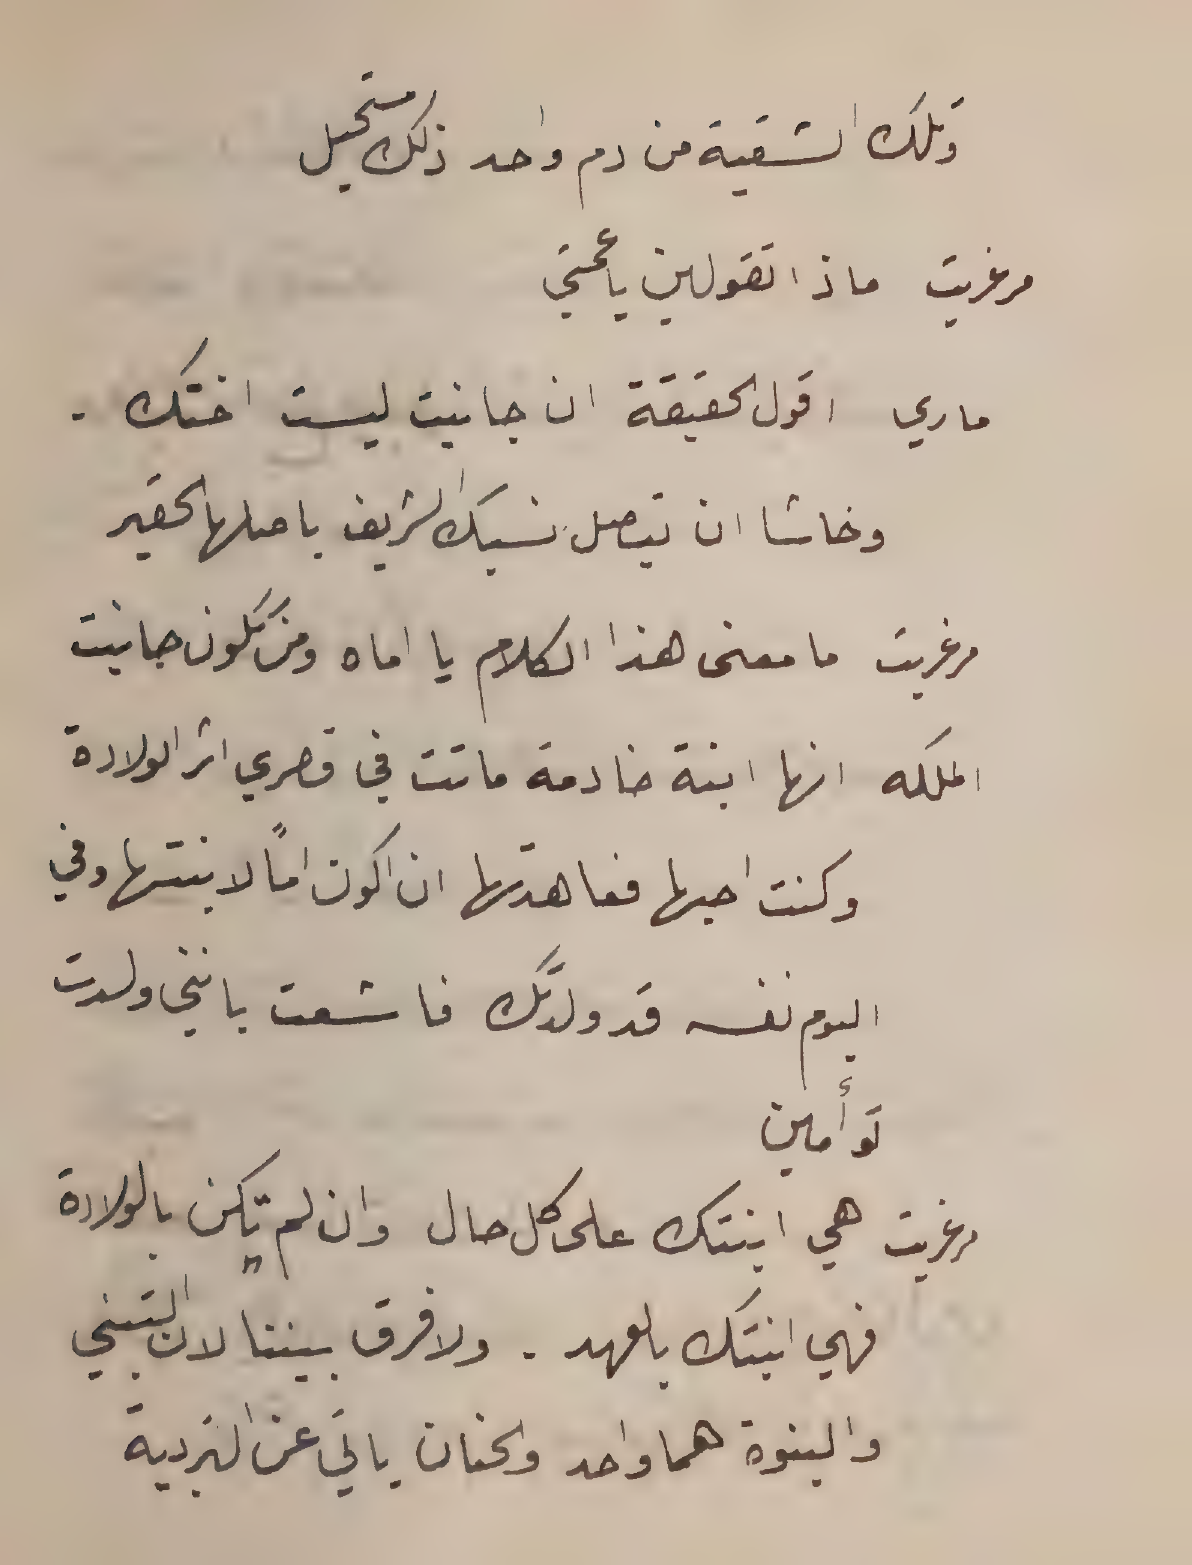 وتلك الشقية من دم واحد ذلك مستحيل
مرغريت ماذا تقولين يا عمتي
ماري اقول الحقيقة ان جانيت ليست اختك .
وخاشا ان يتصل نسبك الشريف باصلها الحقير
مرغريت ما معنى هذا الكلام يا اماه ومن تكون جانيت
الملكه انها ابنة خادمة ماتت في قصري اثر الولادة
وكنت احبها فعاهدتها ان اكون اماً لابنتها وفي
اليوم نفسه قد ولدتك فاشعت بانني ولدت
توأمين
مرغريت هي ابنتك على كل حال وان لم تكن بالولادة
فهي ابنتك بالعهد . ولا فرق بيننا لان التبني
والبنوة هما واحد والحنان ياتي عن التربية